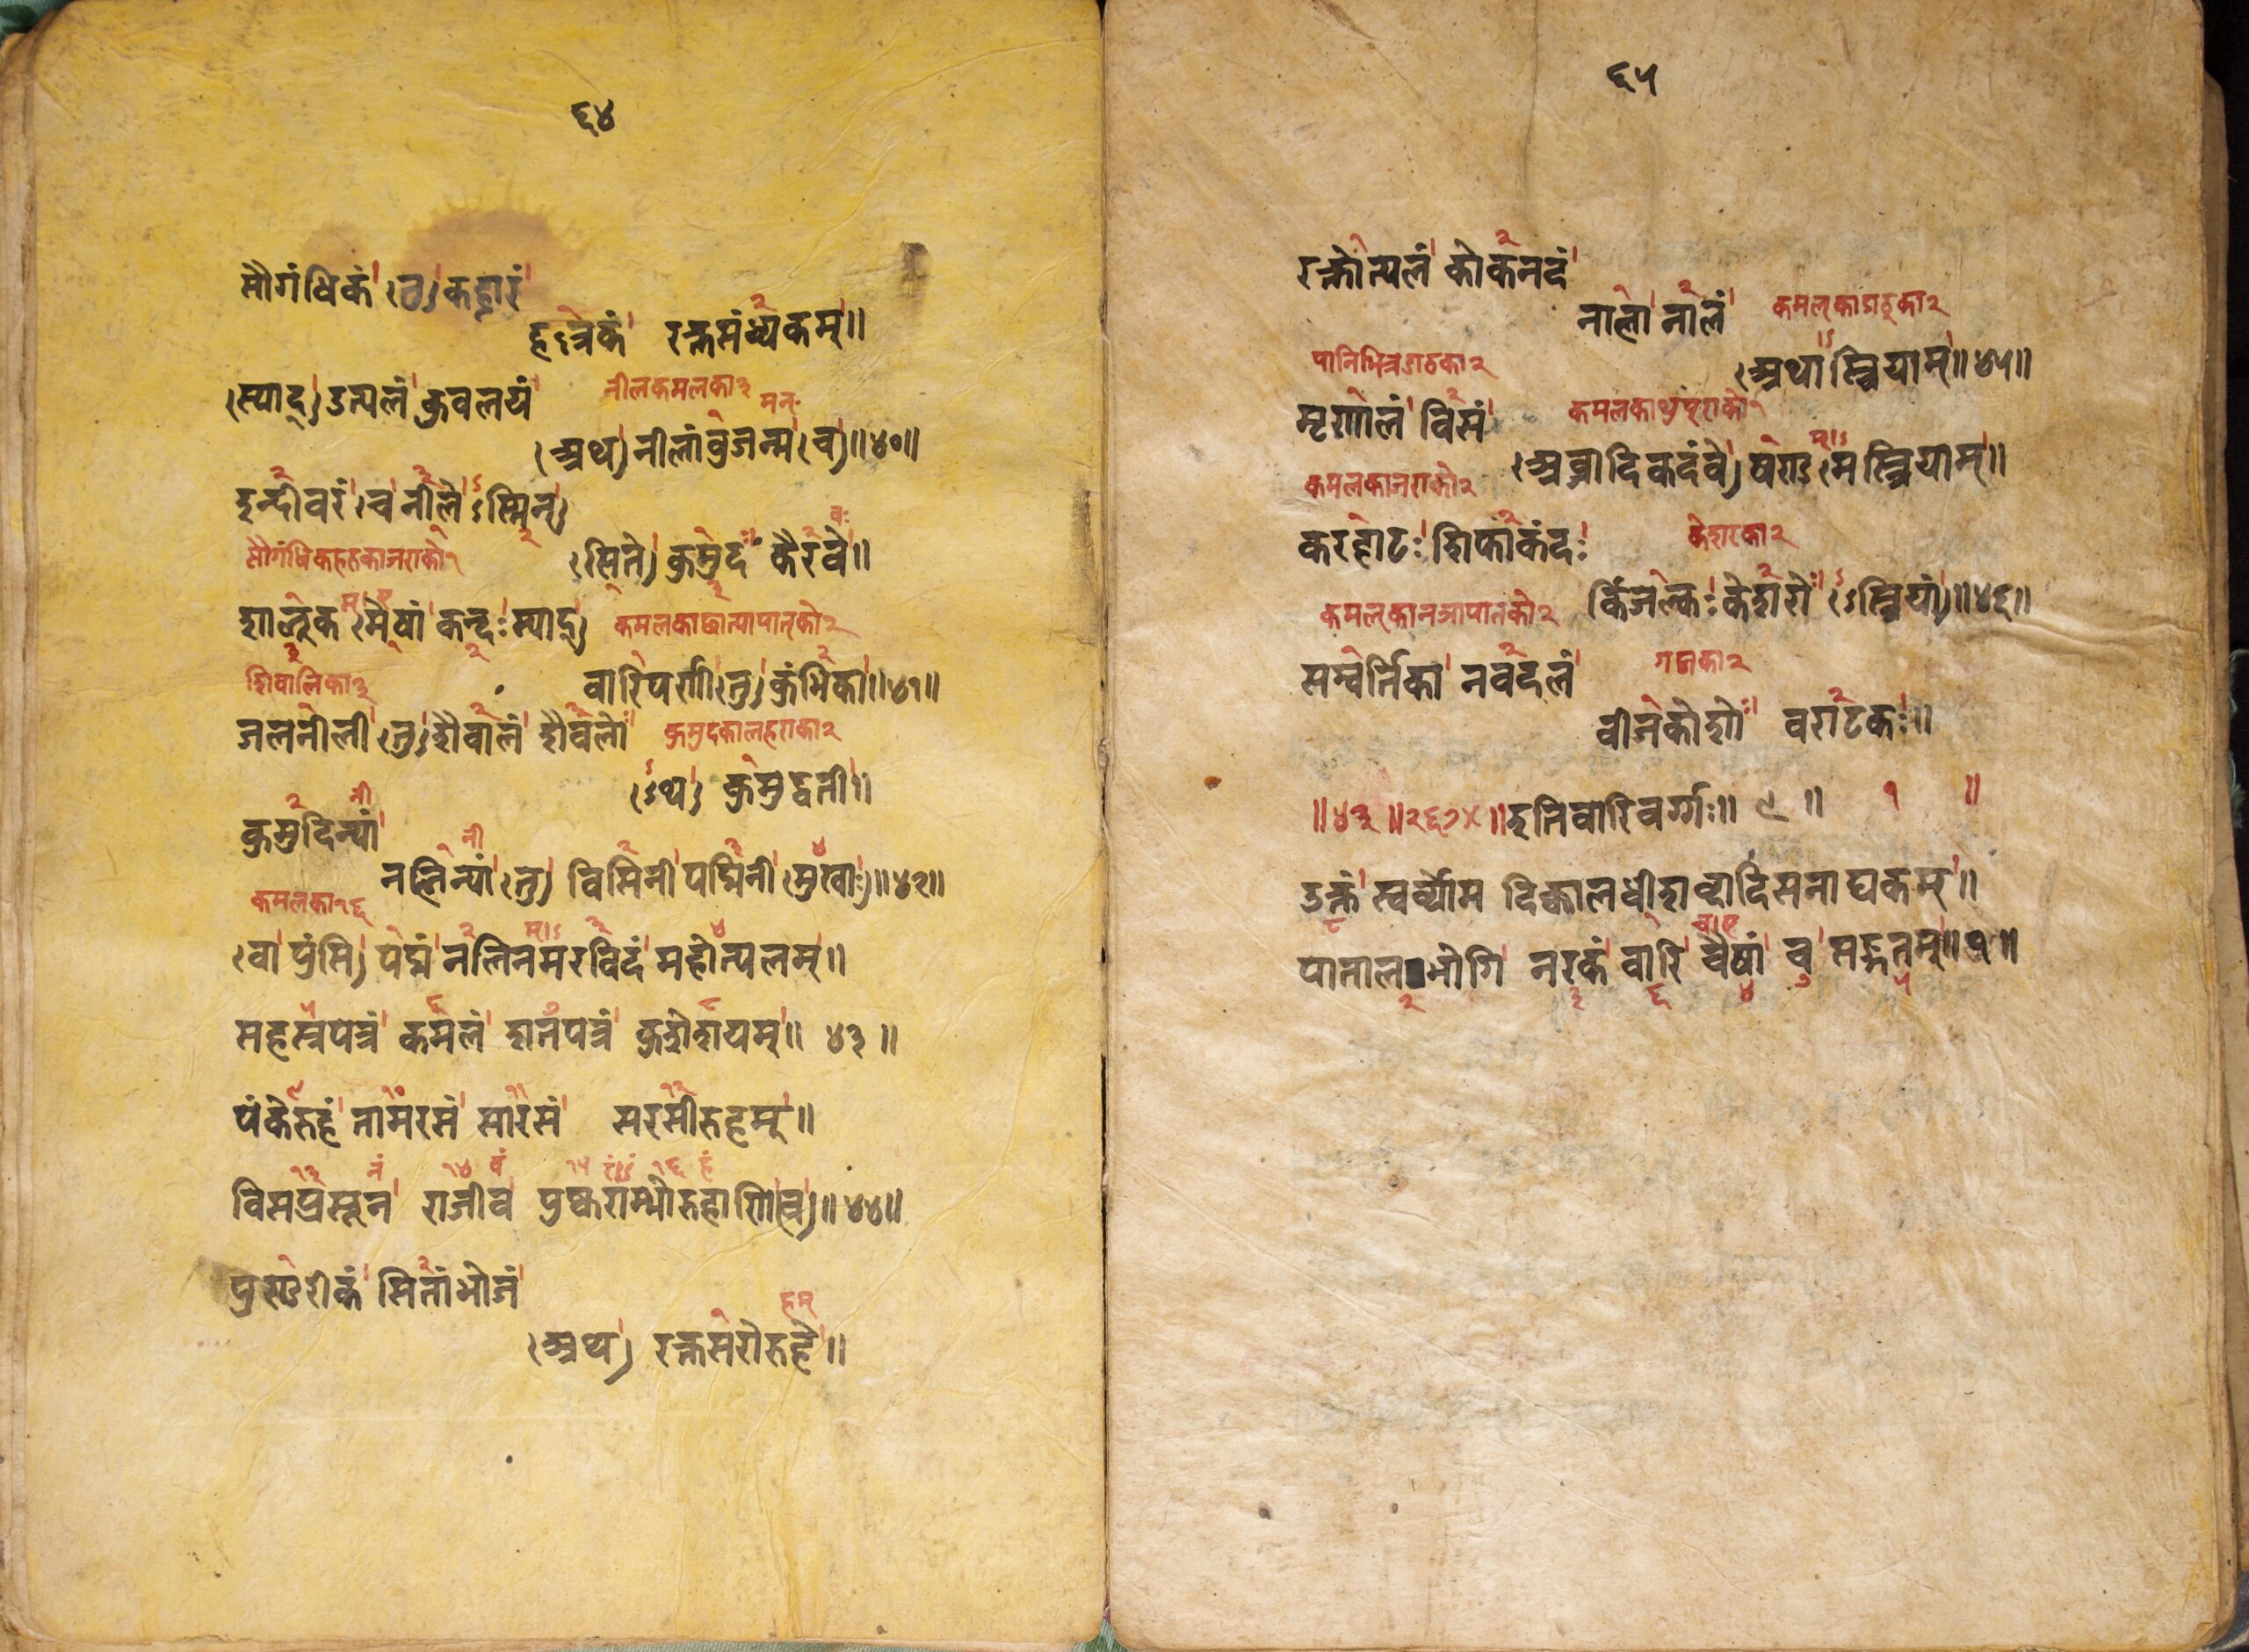 ६४
सौगंधिकं (तु) कह्लारं
हल्लकं रक्तसंध्यकम्॥
(स्याद्) उत्पलं कुवलयं नीलकमलका३ मन्
(अथ) नीलांवुजन्म (च)॥४०॥
इन्दीवरं (च) नीले (ऽस्मिन्)
सौगंधिकहरुकाजराको१ (सिते) कुमुदं कैरवे॥
शालूक (मेषां कन्दः स्याद्)
वारिपर्णी (तु) कुंभिका॥४१॥
शिवालिका३
जलनीली (तु) शैवालं शैवलो कुमुदकालहराका२
(ऽथ) कुमुद्वती॥
कुमुदिन्यां
नलिन्यां (तु) विसिनी पद्मिनी (मुखाः)॥४२॥
कमलका१६
(वा पुंसि) पद्मं नलिनमरविदं महोत्पलम्॥
सहस्रपत्रं कमलं शतपत्रं कुशेशयम्॥ ४३॥
पंकेरुहं तामरसं सारसं सरसीरुहम्॥
विसप्रसून राजीव पुष्कराम्भोरुहाणि (च)॥४४॥
पुण्डरीकं सितांभोजं
(अथ) रक्तसरोरुहे॥
६५
रक्तोत्पलं कोकनदं
नाला नालं कमलकाडाठ्का२
(अथाऽस्त्रियाम्॥४५॥
मृणालं विसं
(अब्जादिकदंवे) षण्ड (मस्त्रियाम्॥
कमलकाजराको२
करहाटः शिफाकंदः केशरका२
किंजल्कः केशरो (ऽस्त्रियां)॥४६॥
सम्वर्तिका नवदलं
वीजकोशो वराटकः॥
इतिवारिवर्ग्गः॥ ९॥ १ ॥
उक्तं स्वर्व्योम दिक्कालधीशब्दादिसनाघकम्॥
पातालभोगि नरकं वारि चैषां च सङ्गतम्॥१॥